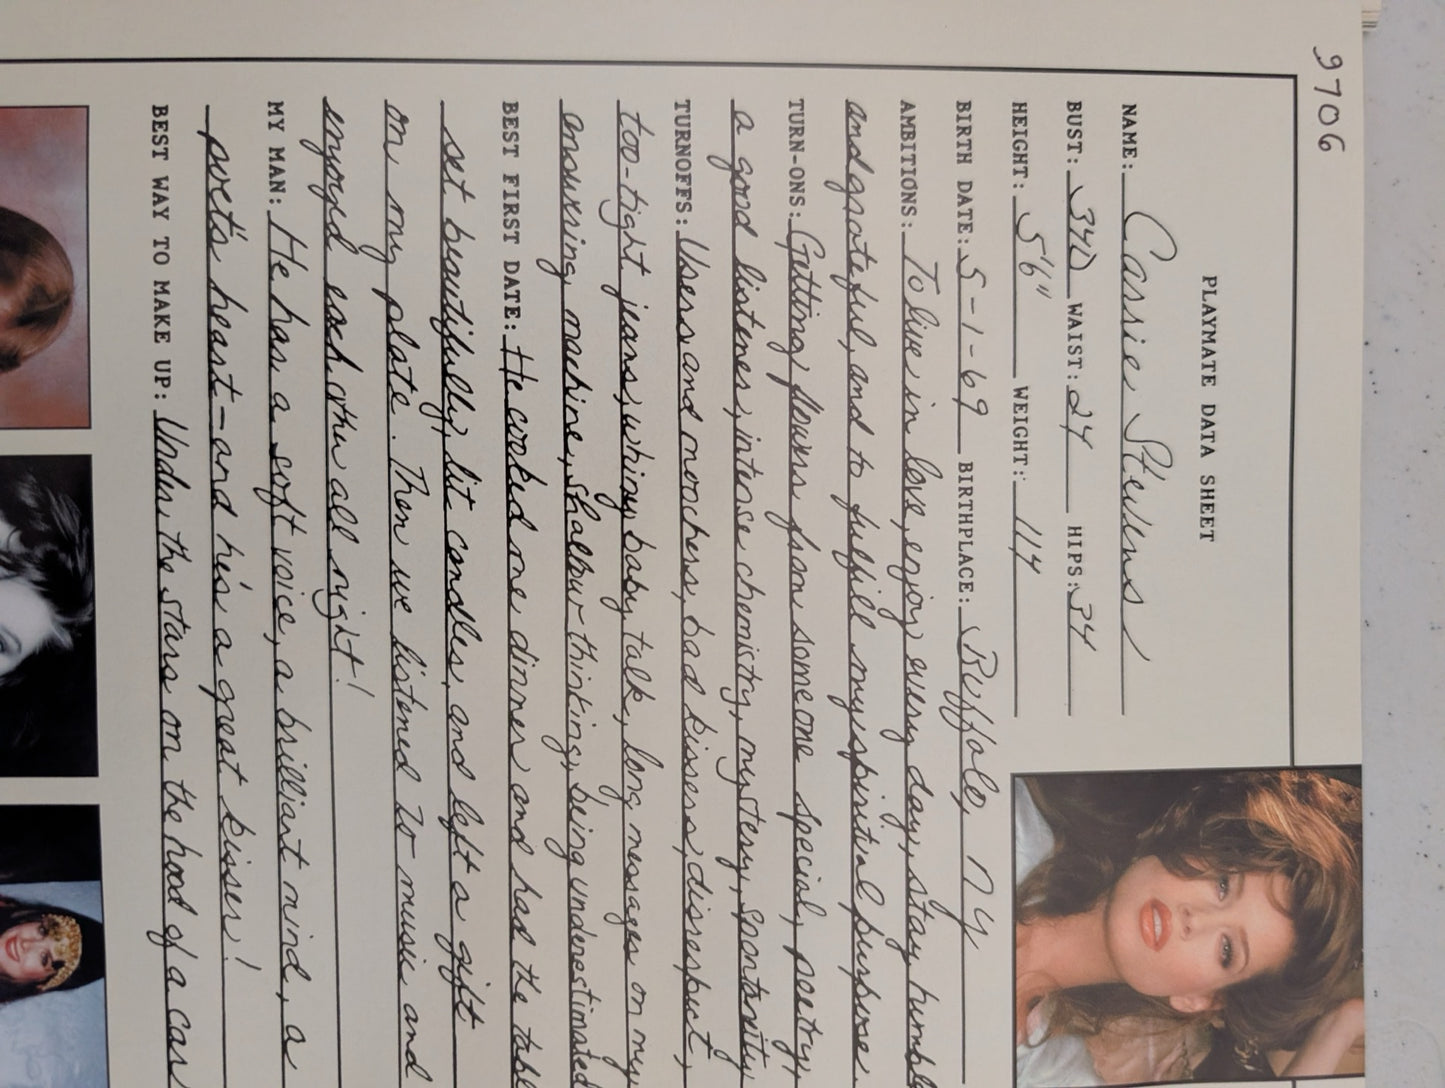 97706
PLAYMATE DATA SHEET
NAME: Carrie Stevens
BUST: 34D WAIST: 24 HIPS: 34
HEIGHT: 5'6" WEIGHT: 114
BIRTH DATE: 5-1-69 BIRTHPLACE: Buffalo, NY
AMBITIONS: To live in love, enjoy every day, stay humble
and grateful, and to fulfill my spiritual purpose.
TURN-ONS: Getting flowers from someone special, poetry,
a good listener, intense chemistry, mystery, spontaneity
TURNOFFS: Users and moochers, bad kissers, disrespect,
too-tight jeans, whiny baby talk, long messages on my
answering machine, shallow thinking, being underestimated
BEST FIRST DATE: He cooked me dinner and had the table
set beautifully, lit candles, and left a gift
on my plate. Then we listened to music and
enjoyed each other all night!
MY MAN: He has a soft voice, a brilliant mind, a
poet's heart—and he's a great kisser!
BEST WAY TO MAKE UP: Under the stars on the hood of a car